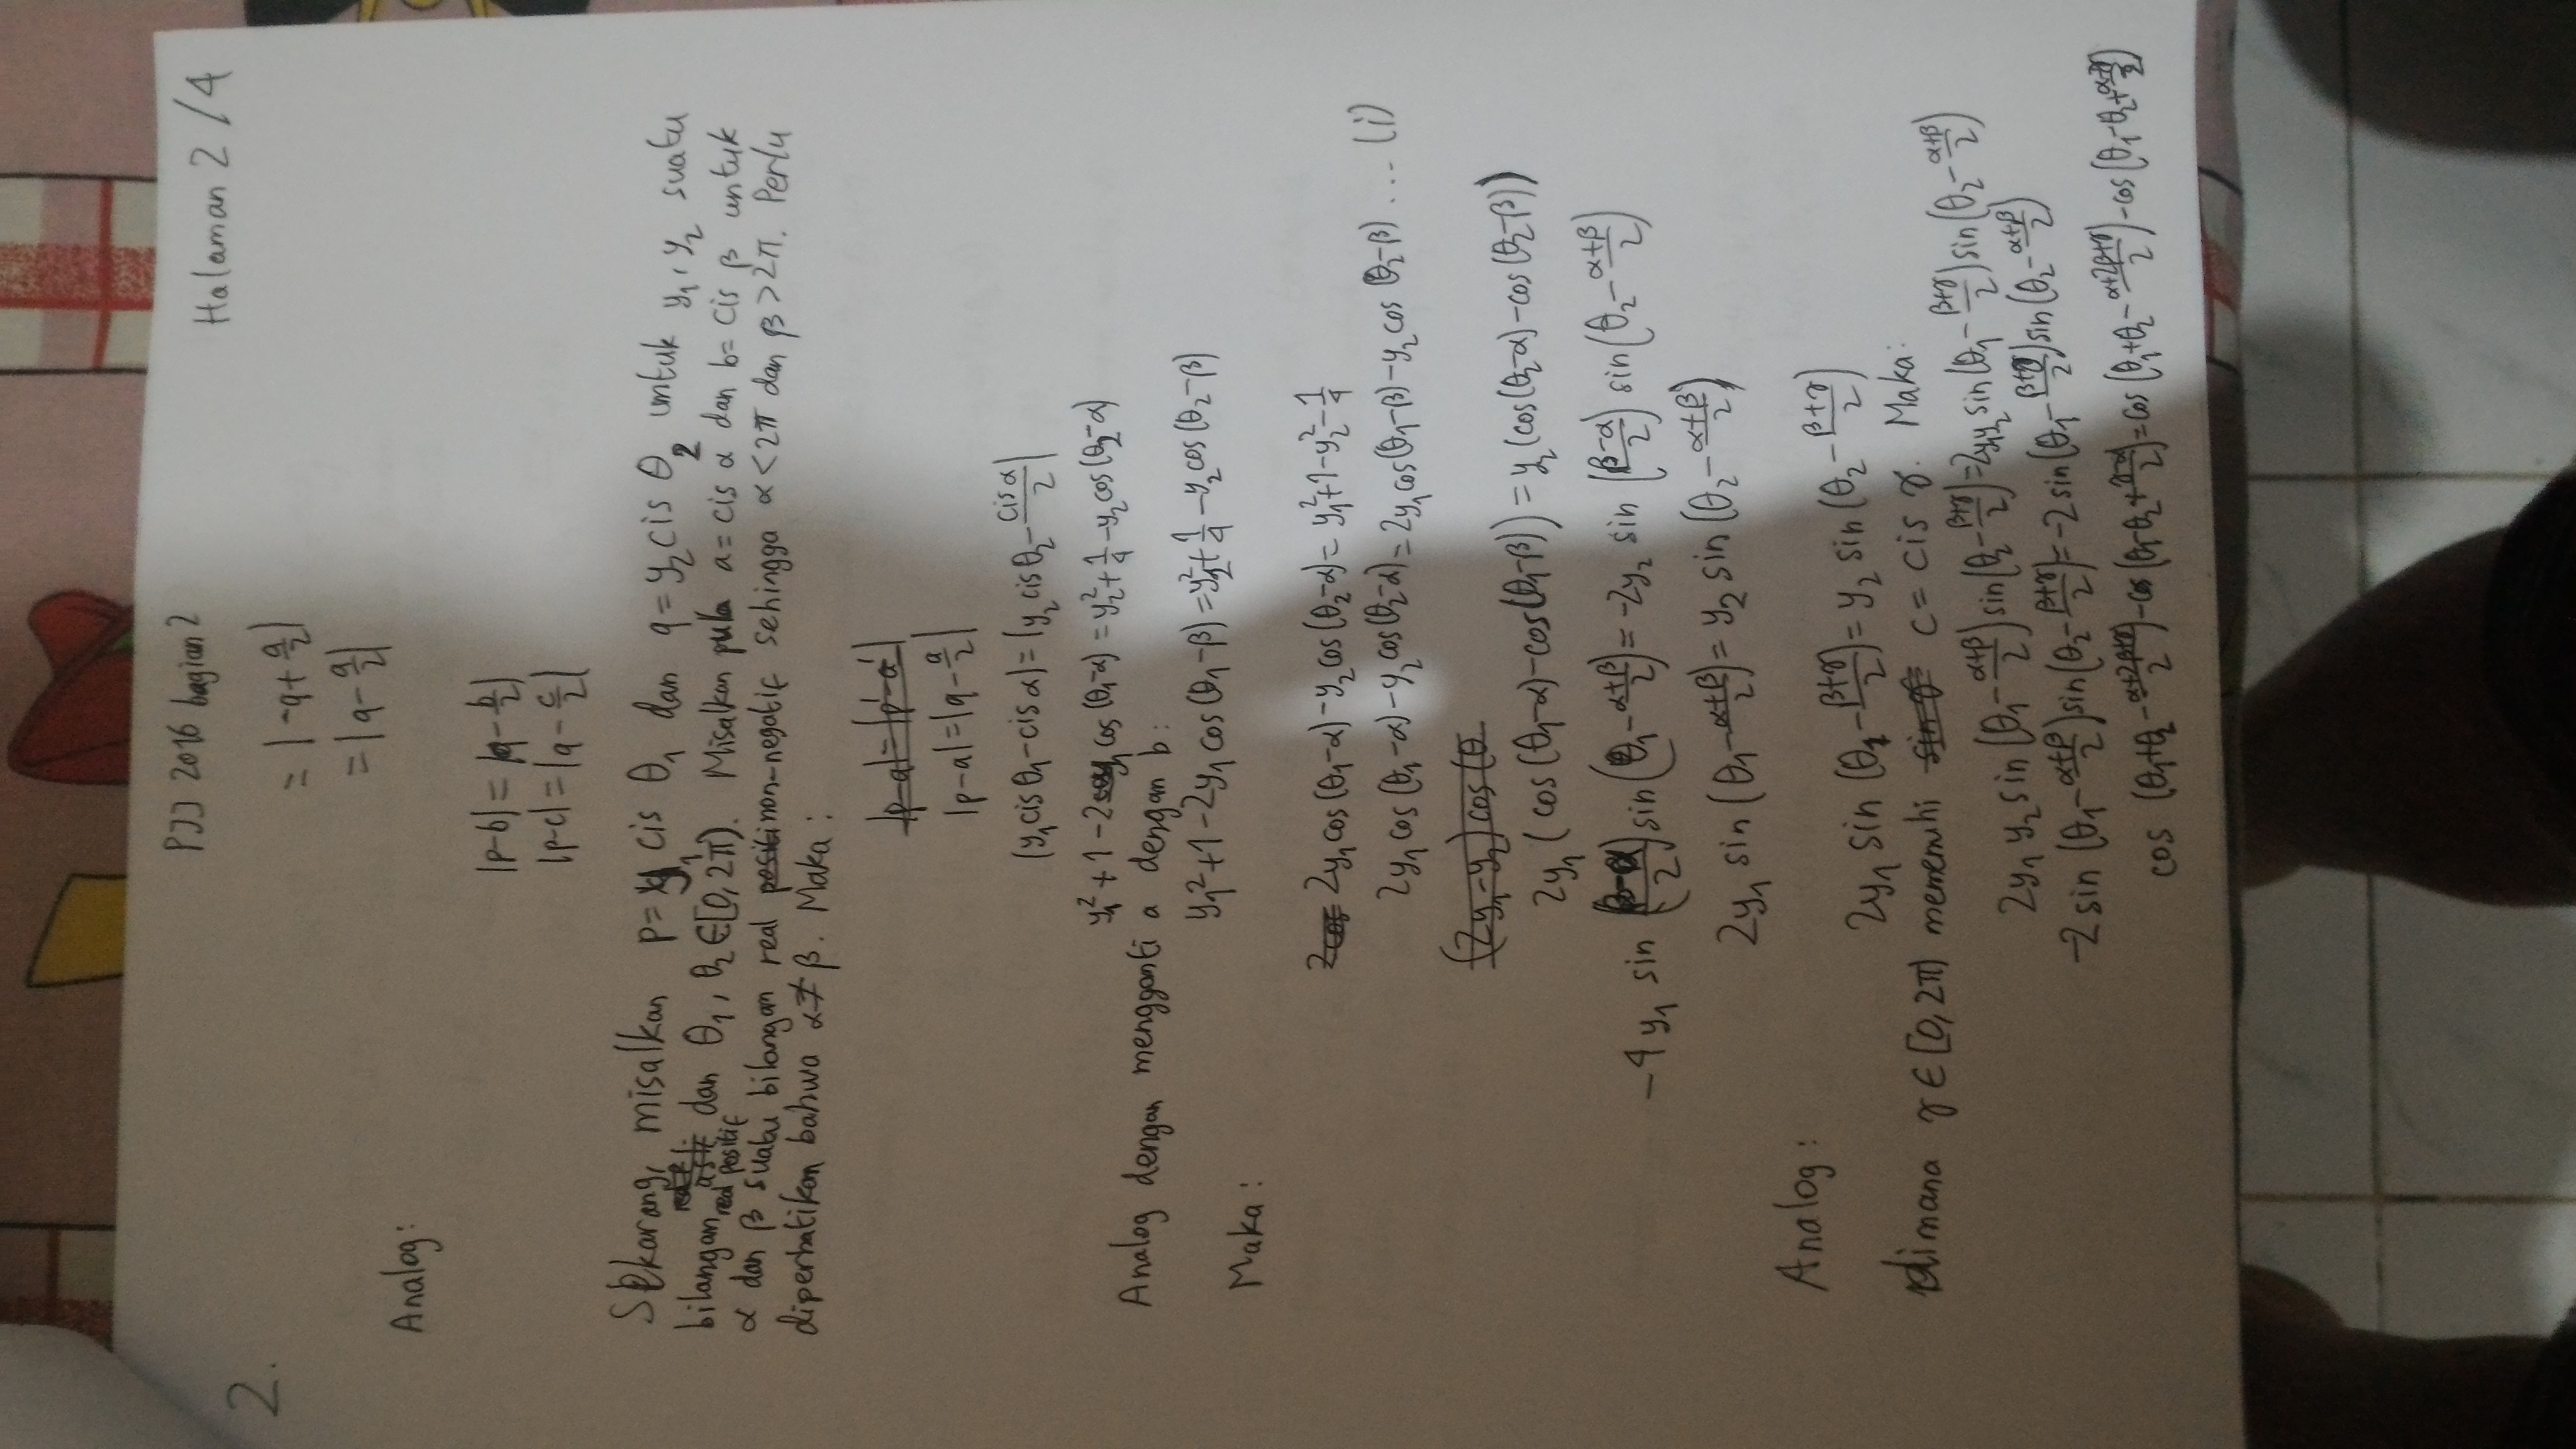 PJJ 2016 bagian 2
Halaman 2/4
2.
= |-q + a/2|
= |q - a/2|
Analog:
|p-b| = |q - b/2|
|p-c| = |q - c/2|
Sekarang, misalkan p = y₁ cis θ₁ dan q = y₂ cis θ₂ untuk y₁, y₂ suatu
bilangan real positif dan θ₁, θ₂ ∈ [0, 2π). Misalkan pula a = cis α dan b = cis β untuk
α dan β suatu bilangan real non-negatif sehingga α < 2π dan β > 2π. Perlu
diperhatikan bahwa α ≠ β. Maka:
|p-a| = |p'-a'|
|p-a| = |q - a/2|
|y₁ cis θ₁ - cis α| = |y₂ cis θ₂ - cis α/2|
y₁² + 1 - 2y₁ cos (θ₁-α) = y₂² + 1/4 - y₂ cos (θ₂-α)
Analog dengan mengganti a dengan b:
y₁² + 1 - 2y₁ cos (θ₁-β) = y₂² + 1/4 - y₂ cos (θ₂-β)
Maka:
2y₁ cos (θ₁-α) - y₂ cos (θ₂-α) = y₁² + 1 - y₂² - 1/4
2y₁ cos (θ₁-α) - y₂ cos (θ₂-α) = 2y₁ cos (θ₁-β) - y₂ cos (θ₂-β) ... (i)
(2y₁-y₂) cos (θ
2y₁ (cos (θ₁-α) - cos (θ₁-β)) = y₂ (cos (θ₂-α) - cos (θ₂-β))
-4y₁ sin ((β-α)/2) sin (θ₁ - (α+β)/2) = -2y₂ sin ((β-α)/2) sin (θ₂ - (α+β)/2)
2y₁ sin (θ₁ - (α+β)/2) = y₂ sin (θ₂ - (α+β)/2)
Analog:
2y₁ sin (θ₁ - (β+γ)/2) = y₂ sin (θ₂ - (β+γ)/2)
dimana γ ∈ [0, 2π) memenuhi c = cis γ. Maka:
2y₁y₂ sin (θ₁ - (α+β)/2) sin (θ₂ - (β+γ)/2) = 2y₁y₂ sin (θ₁ - (β+γ)/2) sin (θ₂ - (α+β)/2)
-2 sin (θ₁ - (α+β)/2) sin (θ₂ - (β+γ)/2) = -2 sin (θ₁ - (β+γ)/2) sin (θ₂ - (α+β)/2)
cos (θ₁+θ₂ - (α+2β+γ)/2) - cos (θ₁-θ₂ + (γ-α)/2) = cos (θ₁+θ₂ - (α+2β+γ)/2) - cos (θ₁-θ₂ + (α-γ)/2)